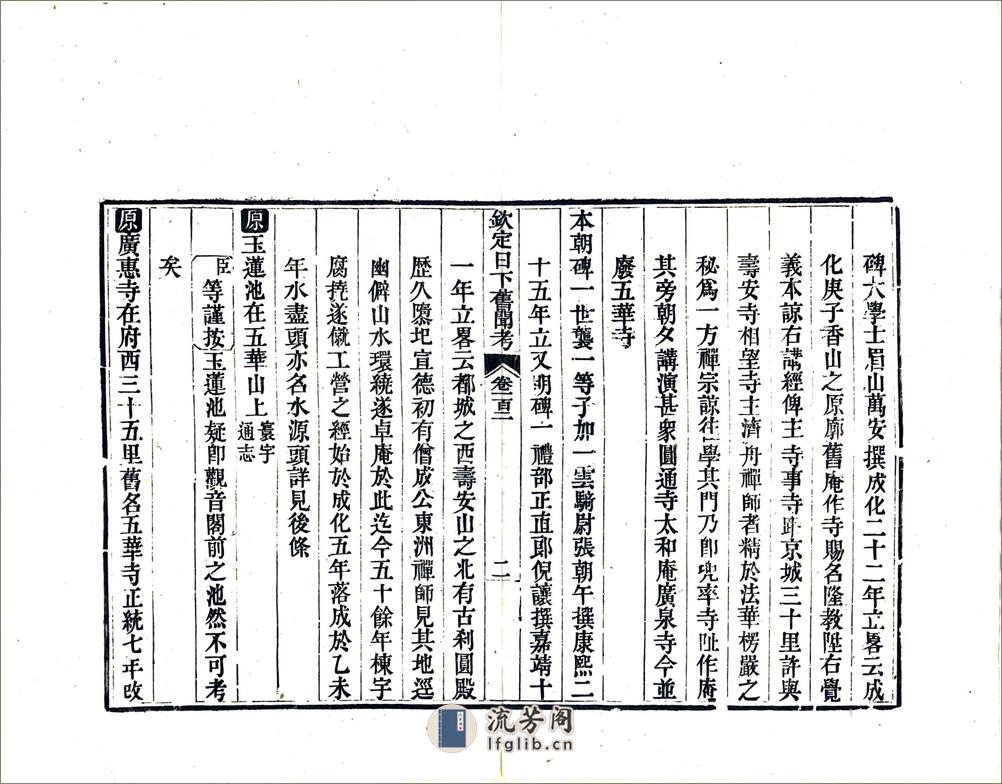 碑大學士眉山萬安撰成化二十二年立畧云成
化庚子香山之原廓舊庵作寺賜名隆教陞右覺
義本諒右講經俾主寺事寺距京城三十里許與
壽安寺相望寺主濟舟禪師者精於法華楞嚴之
秘爲一方禪宗諒徃學其門乃卽兜率寺趾作庵
其旁朝夕講演甚衆圓通寺太和庵廣泉寺今並
廢五華寺
本朝碑一世襲一等子加一雲騎尉張朝午撰康熙二
十五年立又明碑一禮部正直郎倪讓撰嘉靖十
欽定日下舊聞考 卷一百二 二
一年立畧云都城之西壽安山之北有古刹圓殿
歷久隳圯宣德初有僧成公東洲禪師見其地逕
幽僻山水環繞遂卓庵於此迄今五十餘年棟宇
腐撓遂僦工營之經始於成化五年落成於乙未
年水盡頭亦名水源頭詳見後條
原玉蓮池在五華山上寰宇通志
臣等謹按玉蓮池疑卽觀音閣前之池然不可考
矣
原廣惠寺在府西三十五里舊名五華寺正統七年改
流芳阁
lfglib.cn